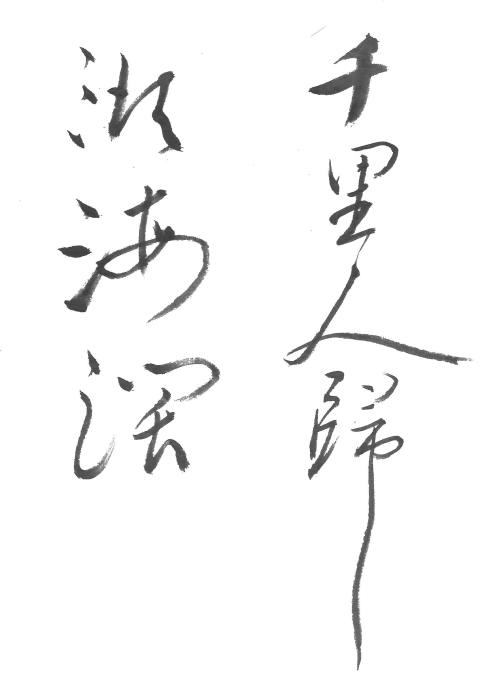 千里人歸
湖海闊